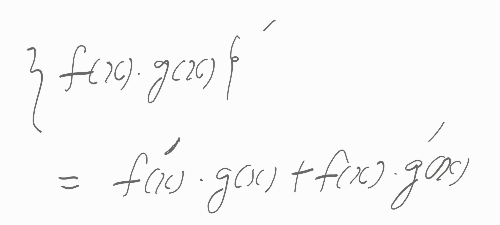 {f(x)·g(x)}′
= f′(x)·g(x)+f(x)·g′(x)